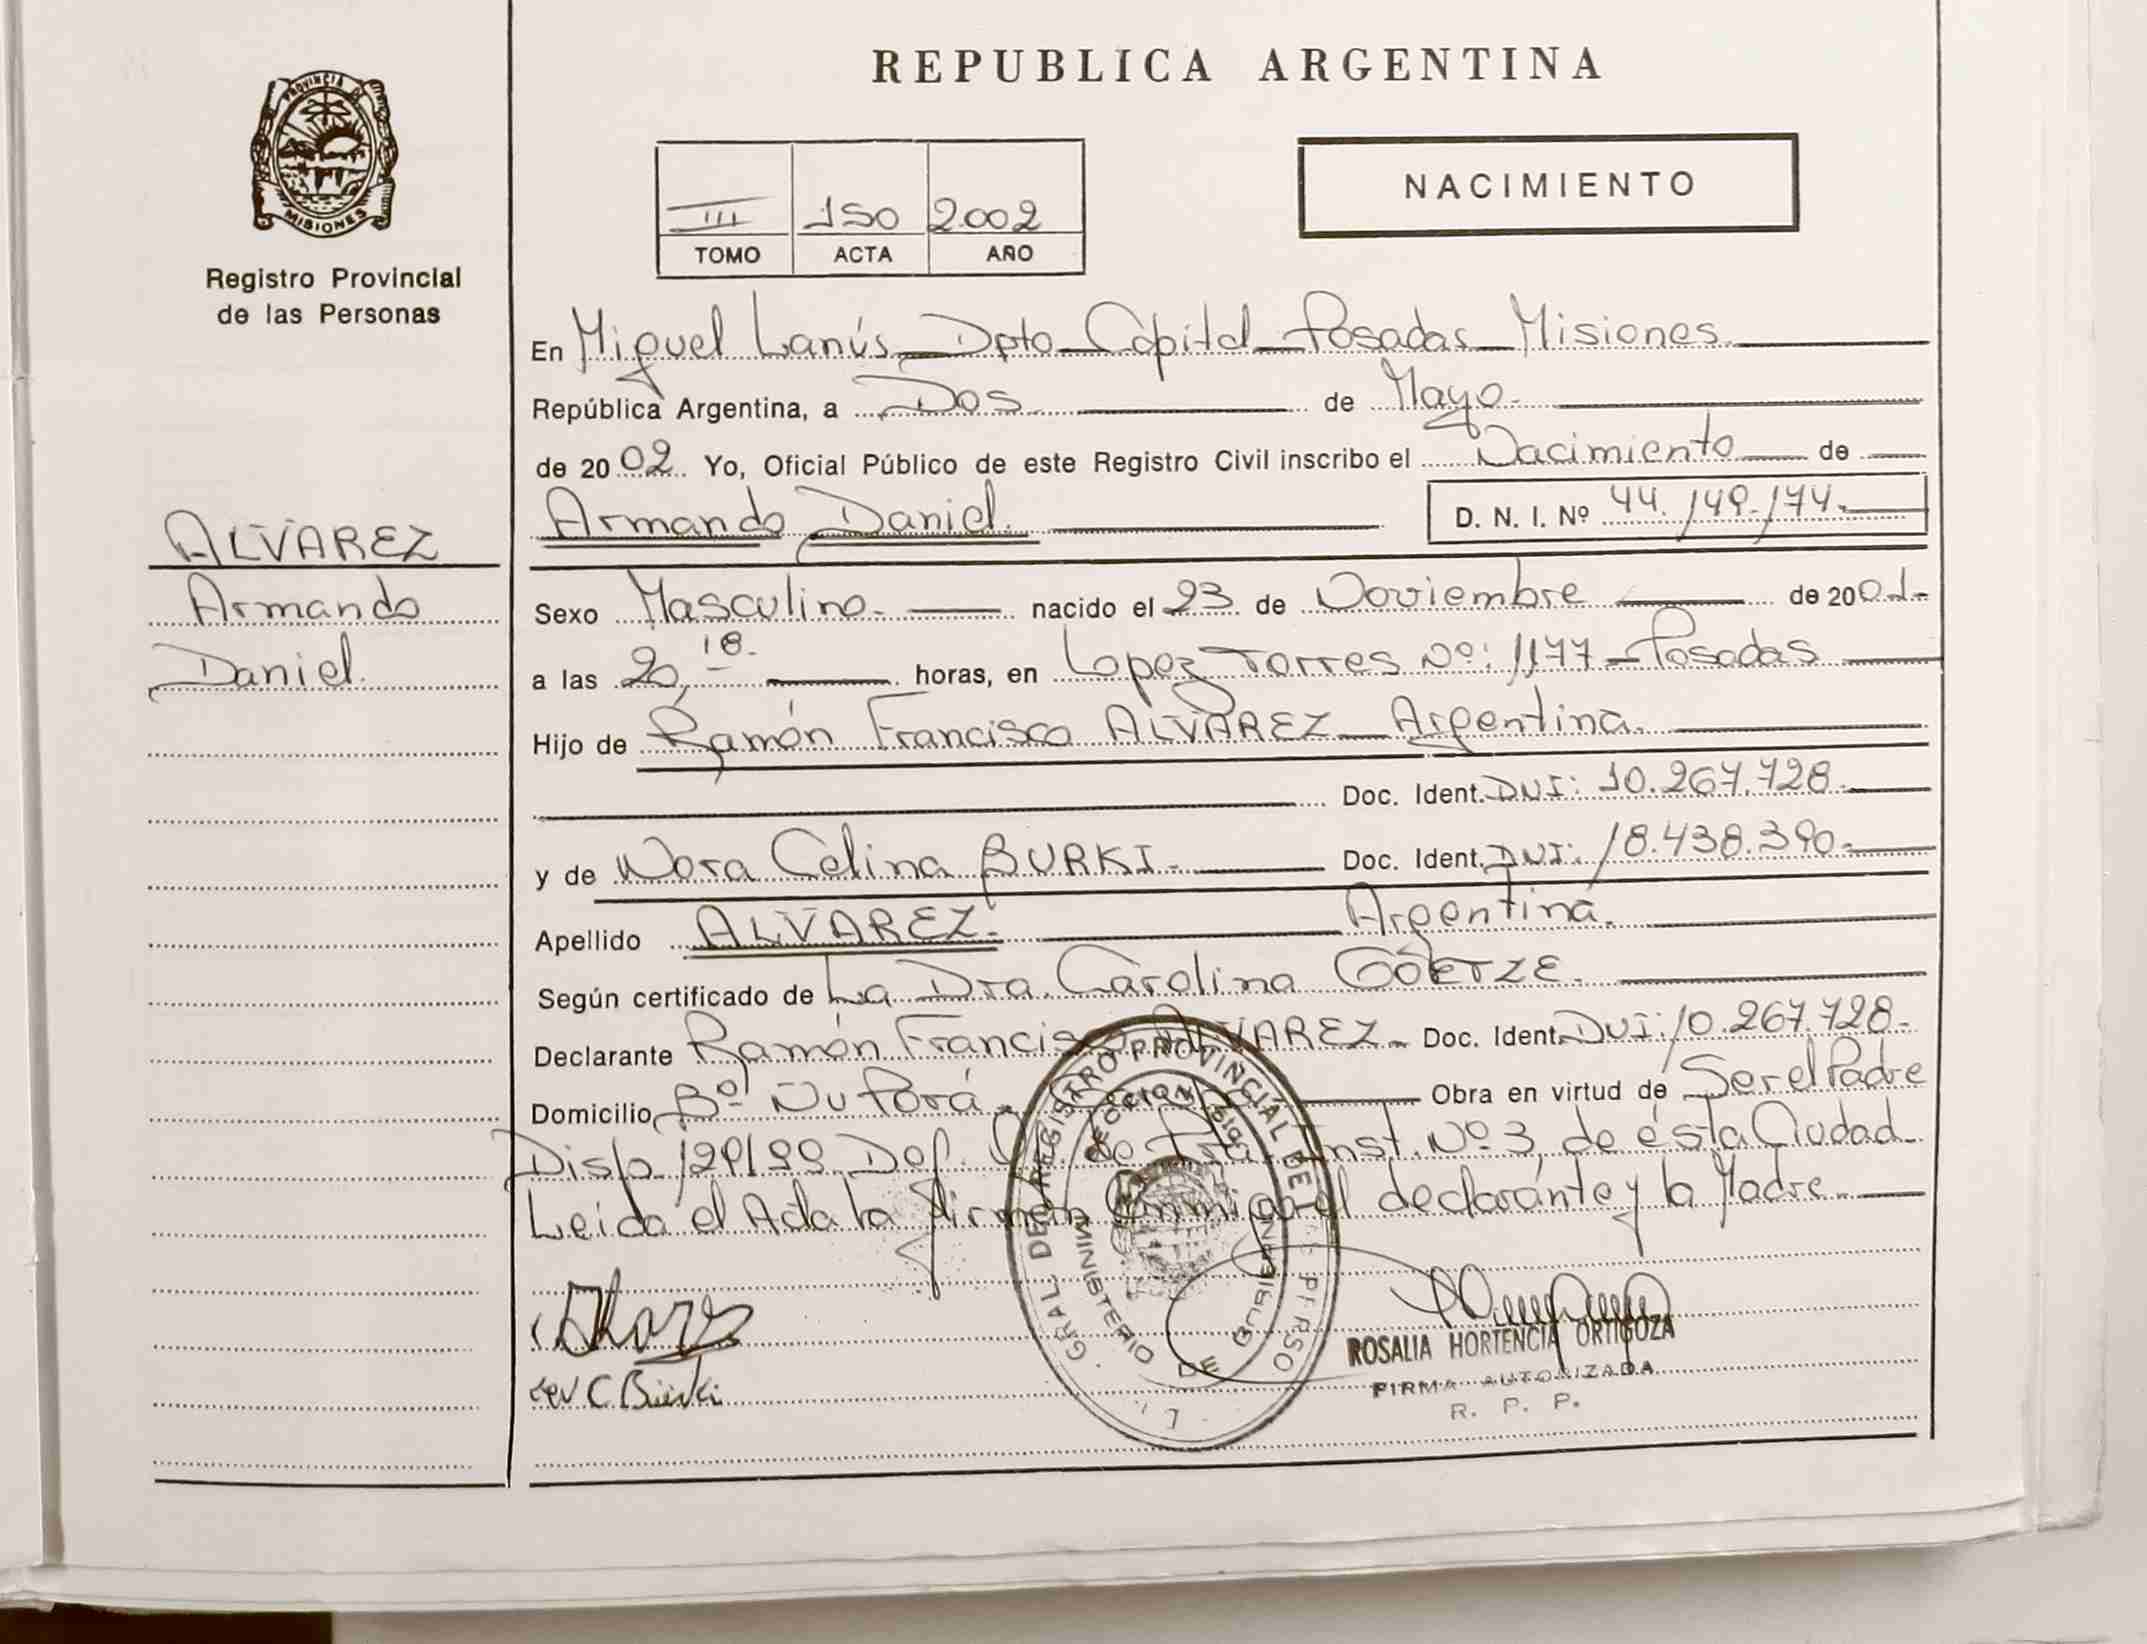 REPUBLICA ARGENTINA
PROVINCIA DE MISIONES
Registro Provincial
de las Personas
III 150 2.002
TOMO ACTA AÑO
NACIMIENTO
En Miguel Lanús Dpto Capital Posadas Misiones.
República Argentina, a Dos de Mayo.
de 2002. Yo, Oficial Público de este Registro Civil inscribo el Nacimiento de
Armando Daniel. D. N. I. Nº 44.149.174.
ALVAREZ
Armando
Daniel.
Sexo Masculino. nacido el 23 de Noviembre de 2001.
a las 20,18. horas, en Lopez Torres Nº: 1177 Posadas
Hijo de Ramón Francisco ALVAREZ Argentina.
Doc. Ident. DNI: 10.267.728.
y de Nora Celina BURKI. Doc. Ident. DNI: 18.438.390.
Apellido ALVAREZ. Argentina.
Según certificado de La Dra. Carolina GÖETZE.
Declarante Ramón Francisco ALVAREZ. Doc. Ident. DNI: 10.267.728.
Domicilio Bº Ñu Porá. Obra en virtud de Ser el Padre
Disp. 129/99 Def. de Inst. Nº 3, de ésta Ciudad.
Leida el Acta la firman conmigo el declarante y la Madre.
N C Bürki
ROSALIA HORTENCIA ORTIGOZA
FIRMA AUTORIZADA
R. P. P.
GRAL DEL REGISTRO PROVINCIAL DE LAS PERSO
MINISTERIO DE GOBIERNO